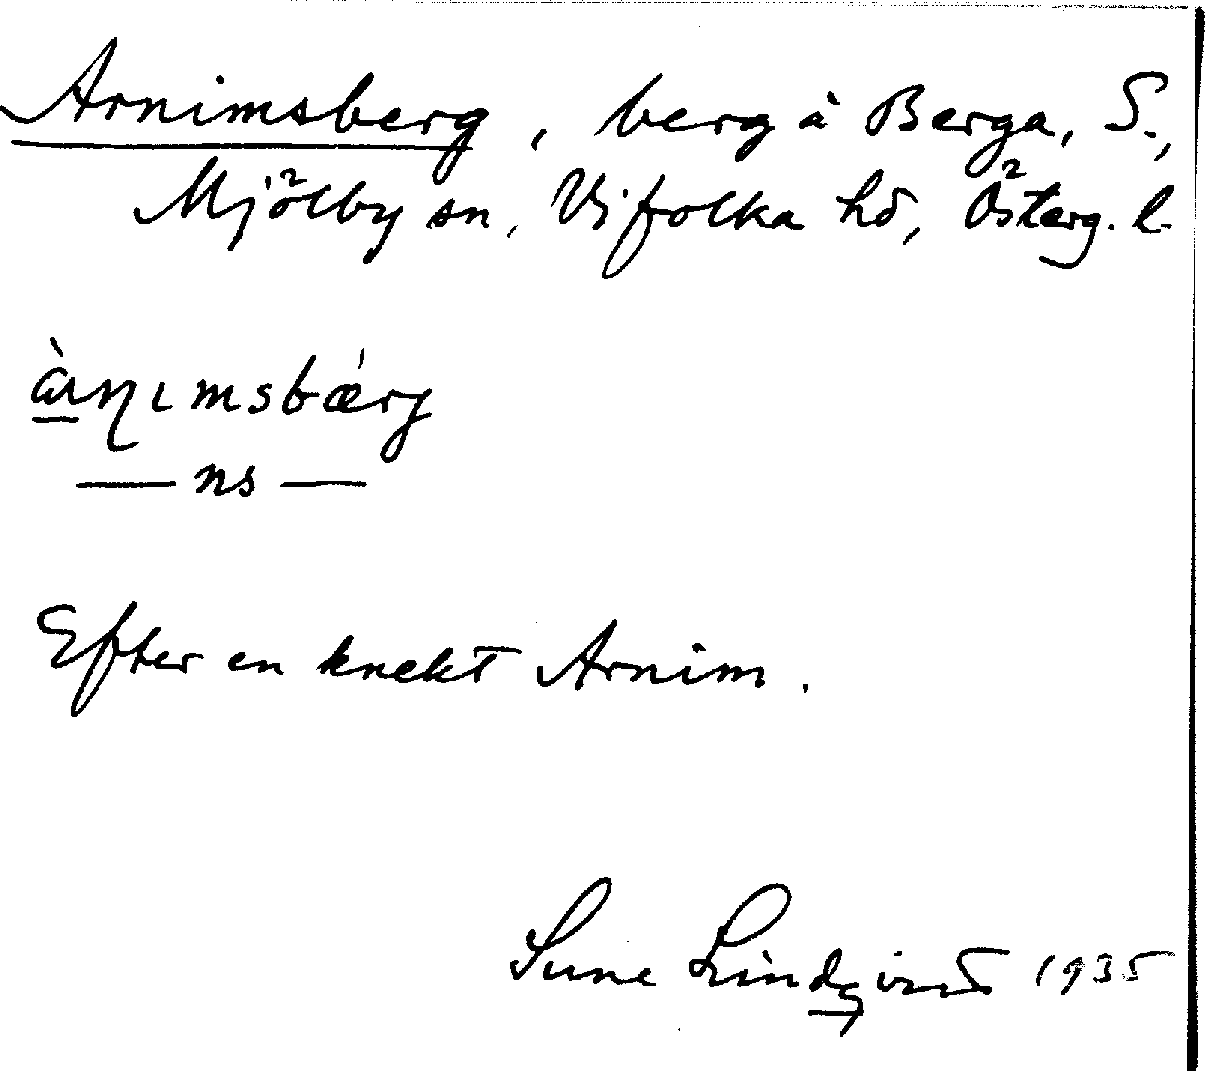 Arnimsberg, berg å Berga, S.,
Mjölby sn, Vifolka hd, Österg. l.
àɳımsbærg
— ns —
Efter en knekt Arnim.
Sune Lindqvist 1935